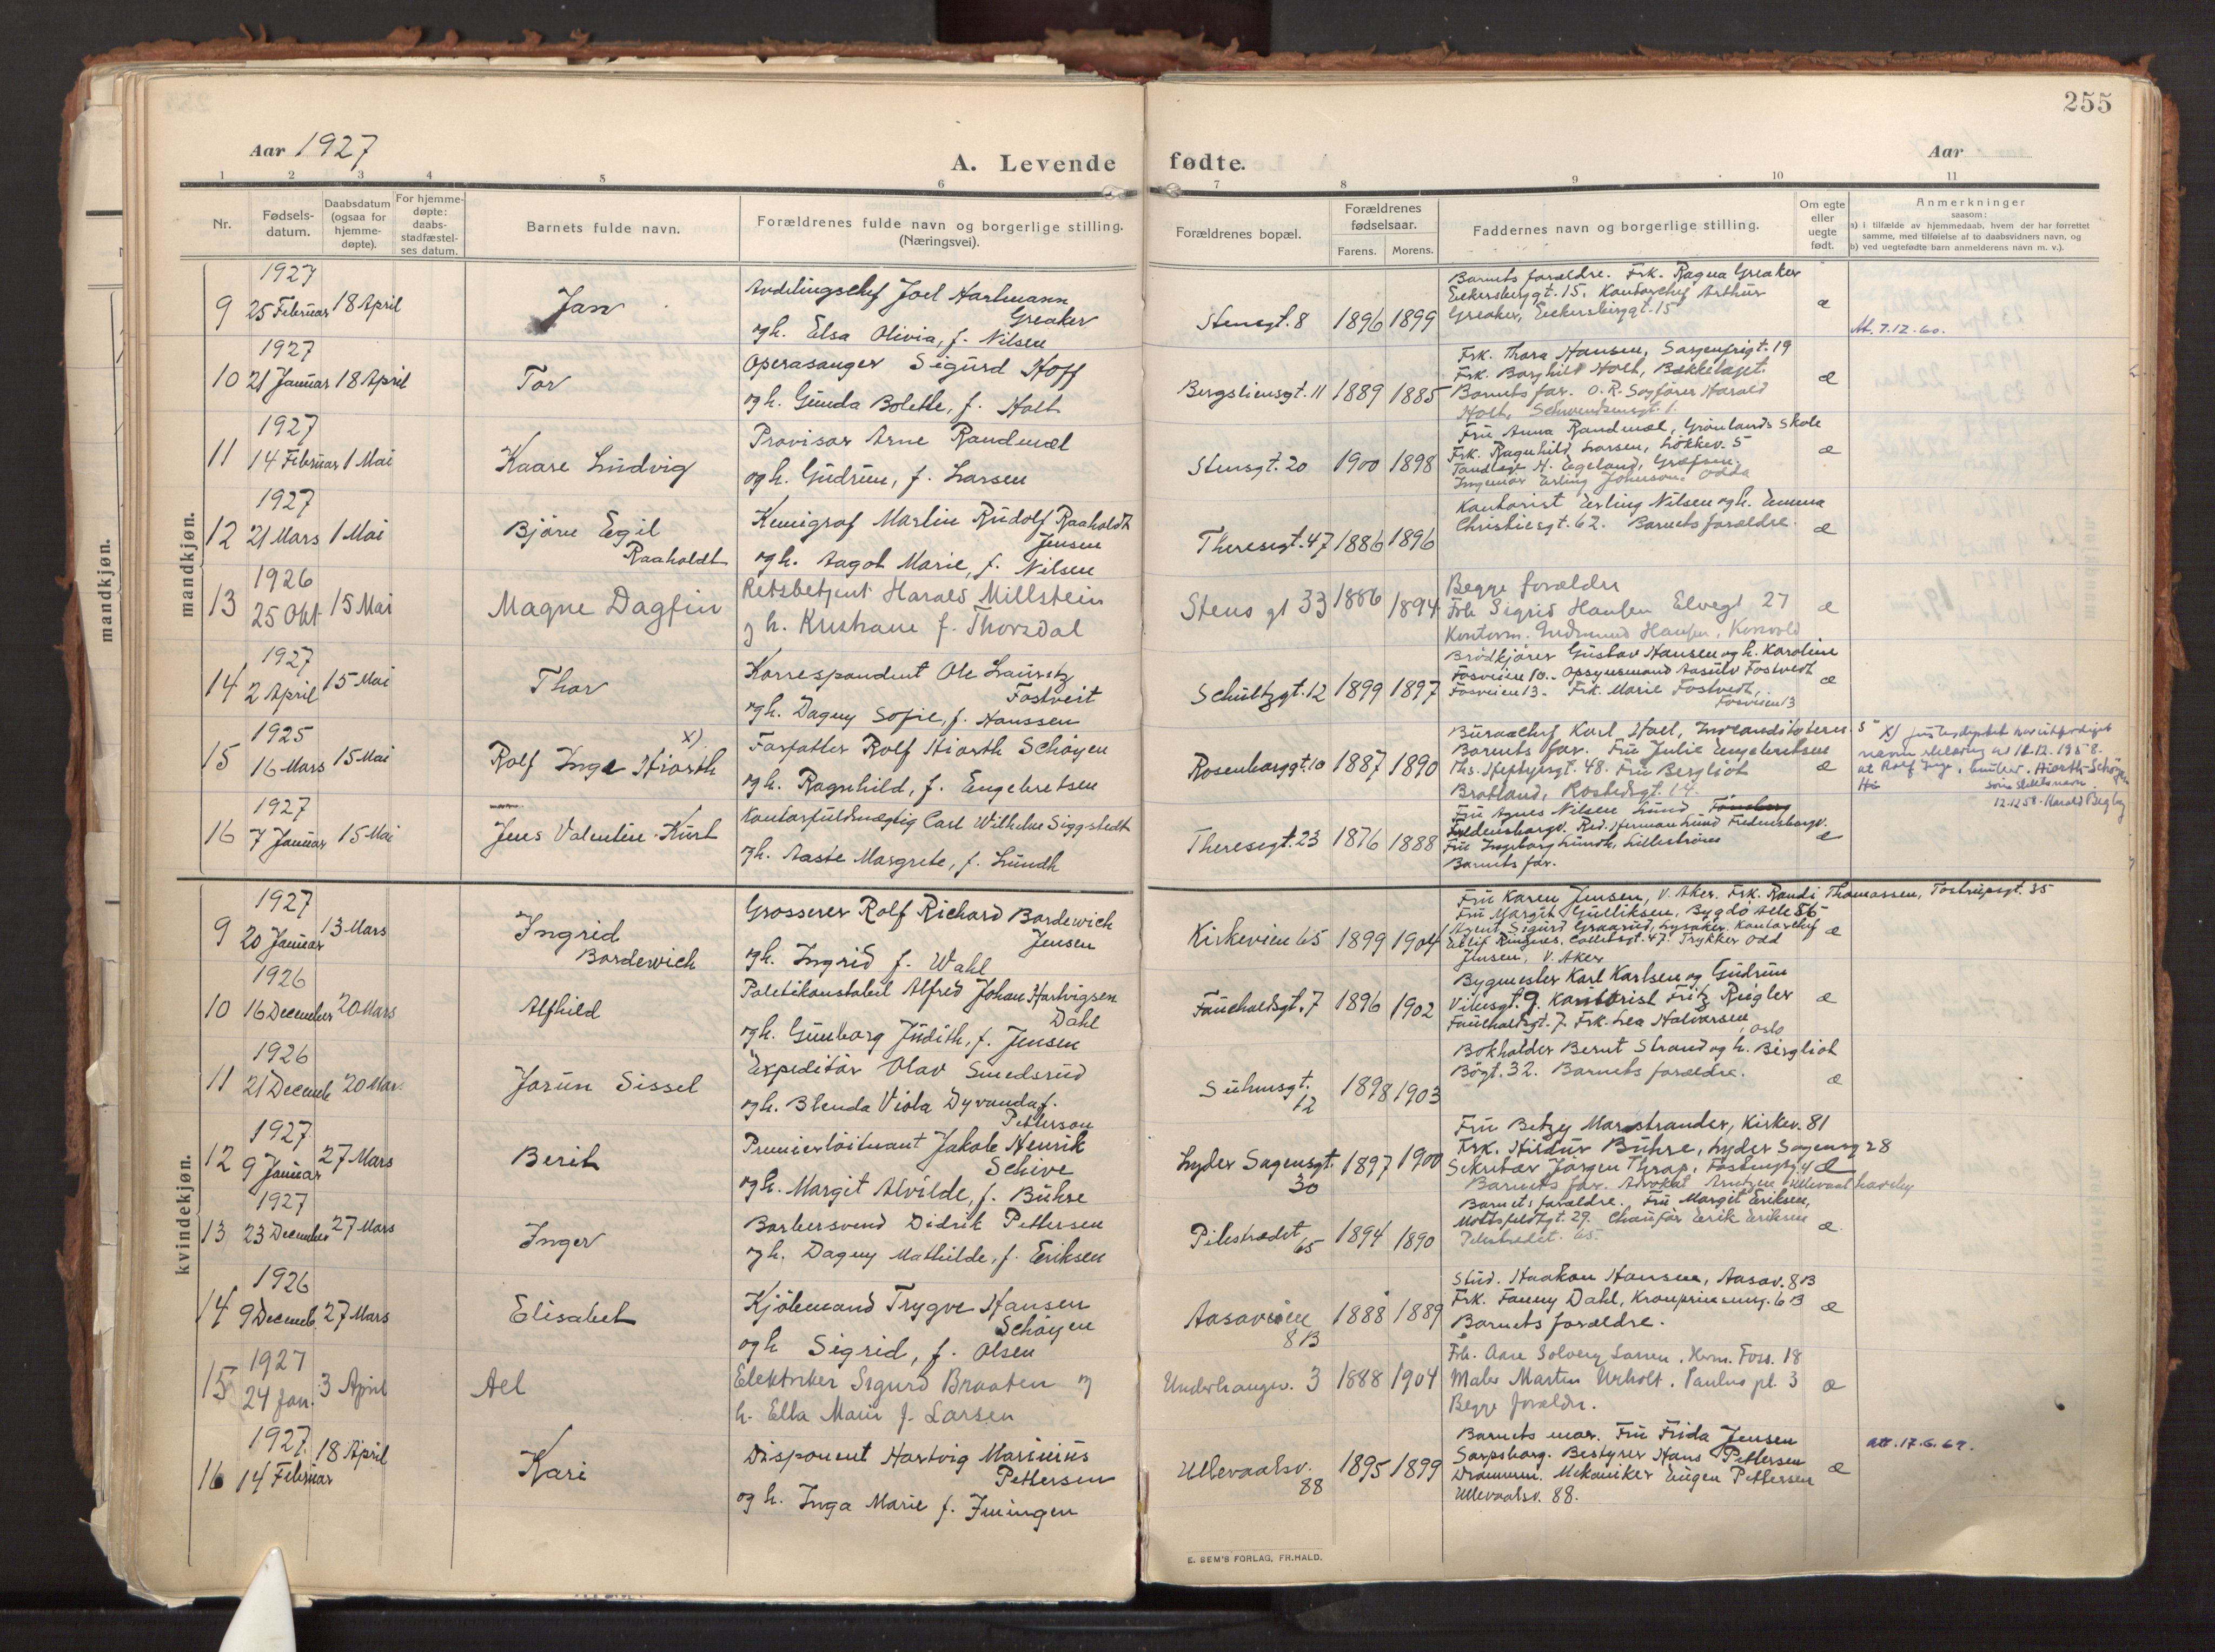 255
Aar 1927
A. Levende fødte.
Aar
1 2 3 4 5 6 7 8 9 10 11
Nr.
Fødsels-
datum.
Daabsdatum
(ogsaa for
hjemme-
døpte).
For hjemme-
døpte:
daabs-
stadfæstel-
ses datum.
Barnets fulde navn.
Forældrenes fulde navn og borgerlige stilling.
(Næringsvei).
Forældrenes bopæl.
Forældrenes
fødselsaar.
Farens. Morens.
Faddernes navn og borgerlige stilling.
Om egte
eller
uegte
født.
Anmerkninger
saasom:
a) i tilfælde av hjemmedaab, hvem der har forrettet
samme, med tilføielse af to daabsvidners navn, og
b) ved uegtefødte barn anmelderens navn m. v.).
mandkjøn.
mandkjøn.
1927
9 25 Februar 18 April
Jan
Avdelingschef Joel Hartmann
Greaker
og h. Elsa Olivia, f. Nilsen
Stensgt. 8 1896 1899
Barnets forældre. Frk. Ragna Greaker
Eckersbergst. 15. Kontorchef Arthur
Greaker, Eckersberggt. 15
æ
At. 7.12.60.
1927
10 21 Januar 18 April
Tor
Operasanger Sigurd Hoff
og h. Gunda Bolette, f. Holt
Bergsliensgt. 11 1889 1885
Frk. Thora Hansen, Sorgenfrigt. 19
Frk. Borghild Holt, Bækkelaget.
Barnets far. O.R. Sagfører Harald
Holt, Schwendsensgt. 1.
æ
1927
11 14 Februar 1 Mai
Kaare Ludvig
Provisor Arne Randmæl
og h. Gudrun, f. Larsen
Stensgt. 20 1900 1898
Fru Anna Randmæl, Grønlands skole
Frk. Ragnhild Larsen, Løkkev. 5
Tandlæge H. Egeland, Grefsen.
Ingeniør Erling Johnson, Odda
æ
1927
12 21 Mars 1 Mai
Bjørn Egil
Raaholdt
Kemigraf Martin Rudolf Raaholdt
Jensen
og h. Aagot Marie, f. Nilsen
Theresgt. 47 1886 1896
Kontorist Erling Nilsen og h. Emma
Christiesgt. 62. Barnets forældre.
æ
1926
13 25 Okt 15 Mai
Magne Dagfin
Retsbetjent Harald Millstein
og h. Kristiane f. Thorsdal
Stens gt 33 1886 1894
Begge forældre
Frk Sigrid Hansen Elvegt 27
Kontorm. Gudmund Hansen, Korsvold
æ
1927
14 2 April 15 Mai
Thor
Korrespondent Ole Lauritz
Fostveit
og h. Dagny Sofie, f. Hanssen
Schultzgt. 12 1899 1897
Brødkjører Gustav Hansen og h. Karoline
Fosveien 10. Opsynsmand Aasulv Fostvedt
Fosveien 13. Frk. Marie Fostvedt,
Fosveien 13
æ
1925
15 16 Mars 15 Mai
x)
Rolf Inge Hiorth
Forfatter Rolf Hiorth Schøyen
og h. Ragnhild, f. Engebretsen
Rosenborggt. 10 1887 1890
Bureauchef Karl Hoel,
Barnets far. Fru Julie Engebretsen
Ths. Heftyesgt. 48. Fru Bergliot
Brotland, Rostedsgt. 14.
æ
navn
at Rolf Inge Hiorth-Schøyen
som slektsnavn
12.12 58. Harald Begby
1927
16 7 Januar 15 Mai
Jens Valentin Kurt
Kontorfuldmægtig Carl Wilhelm Siggstedt
og h. Aaste Margrete, f. Lundh
Theresegt. 23 1876 1888
Fru Agnes Nilsen Lund
Fredensborgv. Red. Herman Lund Fredensborgv.
Fru Ingeborg Lundh, Lillestrøm
Barnets far.
æ
kvindekjøn.
1927
9 20 Januar 13 Mars
Ingrid
Bordewich
Grosserer Rolf Richard Bordewich
Jensen
og h. Ingrid f. Wahl
Kirkeveien 65 1899 1904
Fru Karen Jensen, V. Aker. Frk. Randi Thomassen, Tostrupsgt. 35
Fru Margit Gulliksen, Bygdø Alle 56
Agent Sigurd Graarud, Lysaker. Kontorchef
Eilif Ringnes, Colletsgt. 47. Trykker Odd
Jensen, V. Aker
æ
1926
10 16 December 20 Mars
Alfhild
Politikonstabel Alfred Johan Hartvigsen
Dahl
og h. Gunborg Judith, f. Jensen
Fauchaldsgt. 7 1896 1902
Bygmester Karl Karlsen og Gudrun
Vibesgt. 9. Kontorist Fritz Riegler
Fauchaldsgt. 7. Frk. Lea Halvorsen,
Oslo
æ
1926
11 21 Decemb 20 Mar.
Jorun Sissel
Expeditør Olav Smedsrud
og h. Blenda Viola Dyranda f.
Petterson
Suhmsgt.
12
1898 1903
Bokholder Bernt Strand og h. Bergliot
Bögt. 32. Barnets forældre.
æ
1927
12 9 Januar 27 Mars
Berit
Premierløitnant Jakob Henrik
Schive
og h. Margit Alvilde, f. Bühre
Lyder Sagensgt.
30
1897 1900
Fru Betzy Marstrander, Kirkev. 81
Frk. Hildur Bühre, Lyder Sagensg 28
Sekretær Jørgen Thrap,
Barnets far. Advokat Arntzen Ullevaal haveby
æ
1927
13 23 December 27 Mars
Inger
Barbersvend Didrik Pettersen
og h. Dagny Mathilde, f. Eriksen
Pilestrædet
65
1894 1890
Barnets forældre. Fru Margit Eriksen,
Motzfeldtsgt. 29. Chauffør Erik Eriksen
Pilestrædet. 65.
æ
1926
14 9 Decemb. 27 Mars
Elisabet
Kjøbmand Trygve Hansen
Schøyen
og h Sigrid, f. Olsen
Aasaveien
8 B
1888 1889
Stud. Haakon Hansen, Aasav. 8 B
Frk. Fanny Dahl, Kronprinsensg. 6 B
Barnets forældre.
æ
1927
15 24 Jan. 3 April
Ael
Elektriker Sigurd Braaten og
h. Ella Marie f. Larsen
Underhaugsv. 3 1888 1904
Frk. Aase Solveig Larsen, Herm. Foss. 18
Maler Martin Urholt, Paulus pl. 3
Begge forældre.
æ
1927
16 14 Februar 18 April
Kari
Disponent Hartvig Marinius
Pettersen
og h. Inga Marie f. Iningen
Ullevaalsv.
88
1895 1899
Barnets mor. Fru Frida Jensen
Sarpsborg. Bestyrer Hans Pettersen
Drammen. Mekaniker Eugen Pettersen
Ullevaalsv. 88.
æ
att. 17.6.69.
E. SEM'S FORLAG, FR.HALD.